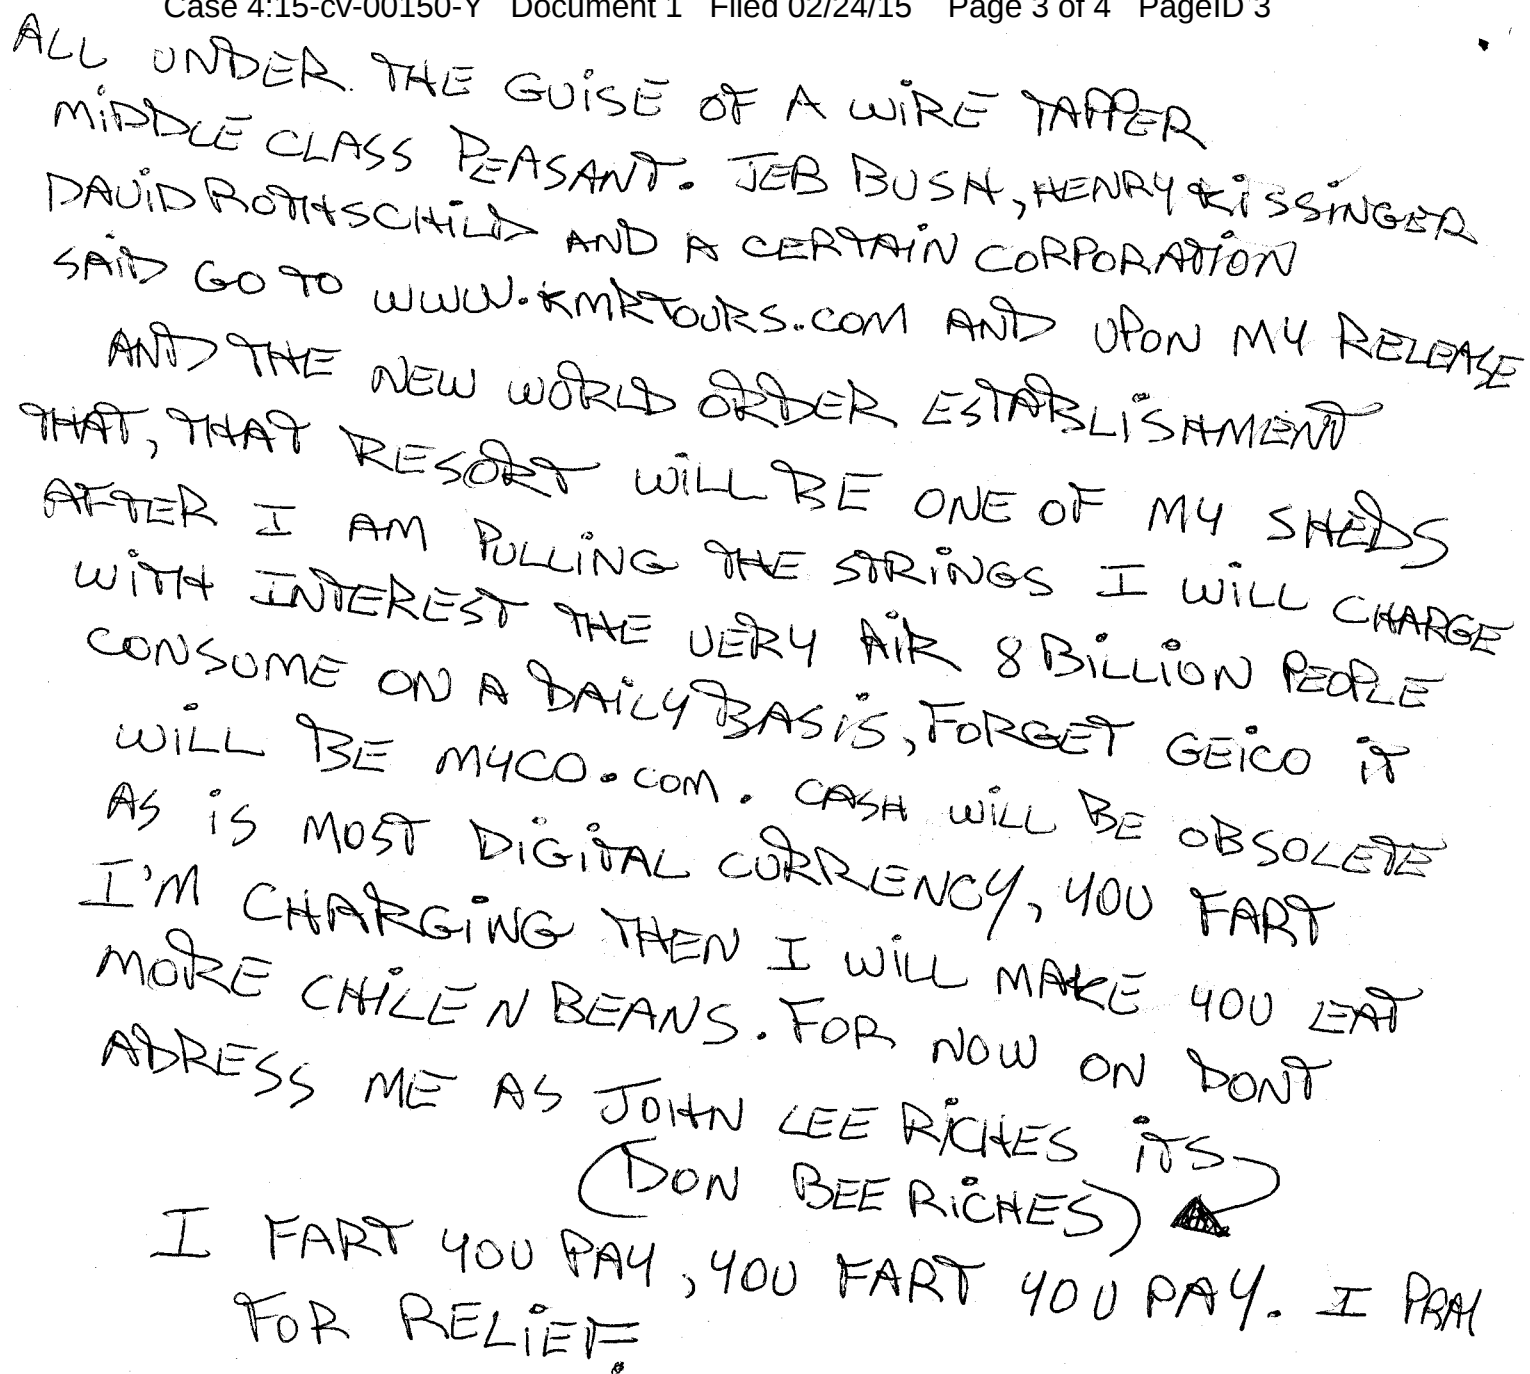 Case 4:15-cv-00150-Y Document 1 Filed 02/24/15 Page 3 of 4 PageID 3
ALL UNDER THE GUiSE OF A WiRE TAPPER
MiDDLE CLASS PEASANT. JEB BUSH, HENRY KiSSiNGER
DAViD ROTHSCHiLD AND A CERTAiN CORPORATiON
SAiD GO TO WWW.KMRTOURS.COM AND UPON MY RELEASE
AND THE NEW WORLD ORDER ESTABLiSHMENT
THAT, THAT RESORT WiLL BE ONE OF MY SHEDS
AFTER I AM PULLiNG THE STRiNGS I WiLL CHARGE
WiTH INTEREST THE VERY AiR 8 BiLLiON PEOPLE
CONSUME ON A DAiLY BASiS, FORGET GEiCO iT
WiLL BE MYCO.COM. CASH WiLL BE OBSOLETE
AS iS MOST DiGiTAL CURRENCY, YOU FART
I'M CHARGiNG THEN I WiLL MAKE YOU EAT
MORE CHiLE N BEANS. FOR NOW ON DONT
ADRESS ME AS JOHN LEE RiCHES iTS
(DON BEE RiCHES)
I FART YOU PAY, YOU FART YOU PAY. I PRAY
FOR RELiEF.